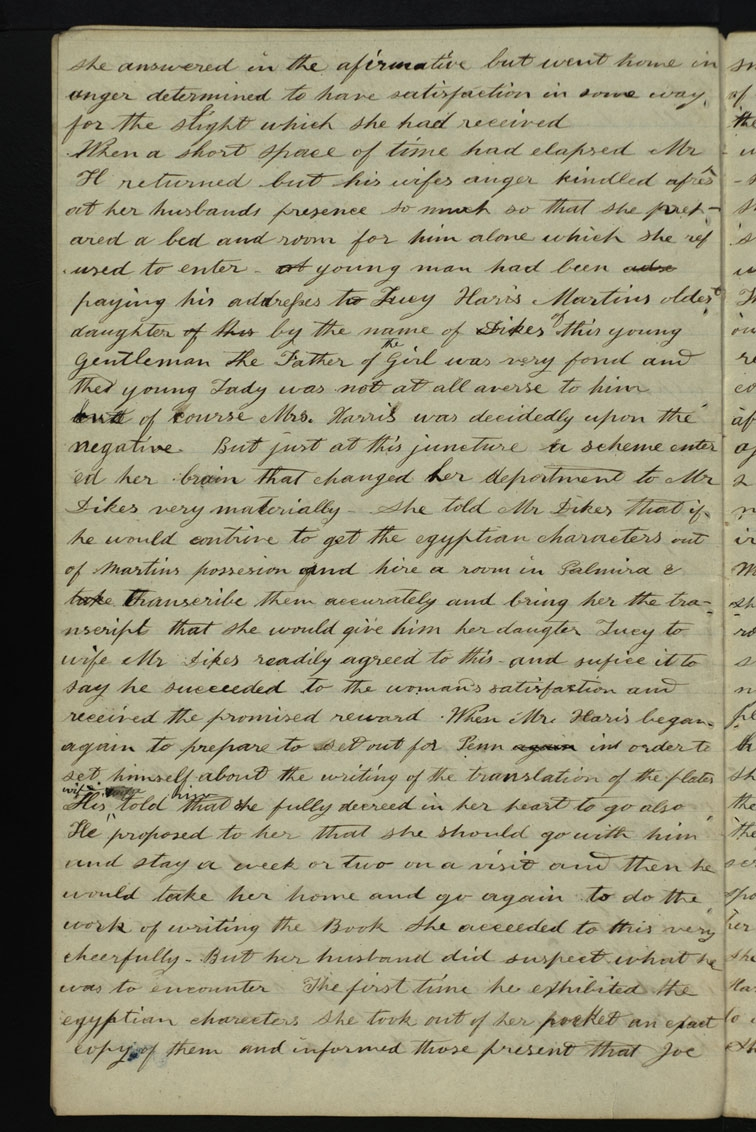 she answered in the afirmative but went home in
anger determined to have satisfaction in some way
for the slight which she had received
When a short space of time had elapsed Mr
H returned but his wifes anger kindled afres
at her husbands presence so much so that she prep-
ared a bed and room for him alone which she ref
used to enter - at young man had been
paying his addresses to Lucy Haris Martins oldest
daughter of this by the name of Dikes of this young
Gentleman the Father of the Girl was very fond and
the young Lady was not at all averse to him
but of course Mrs. Harris was decidedly upon the
negative But just at this juncture a scheme enter
ed her brain that changed her deportment to Mr
Dikes very materially - she told Mr Dikes that if
he would contrive to get the egyptian characters out
of Martins possesion and hire a room in Palmira &
take transcribe them accurately and bring her the tra-
nscript that she would give him her daugter Lucy to
wife Mr Dikes readily agreed to this and sufice it to
say he succeeded to the woman's satisfaction and
received the promised reward When Mr. Haris began
again to prepare to set out for Penn again in order to
set himself about the writing of the translation of the plates
His wife told him that she fully decreed in her heart to go also
He proposed to her that she should go with him
and stay a week or two on a visit and then he
would take her home and go again to do the
work of writing the Book she acceeded to this very
cheerfully - But her husband did suspect what he
was to encounter The first time he exhibited the
egyptian charecters she took out of her pocket an exact
copy of them and informed those present that Joe